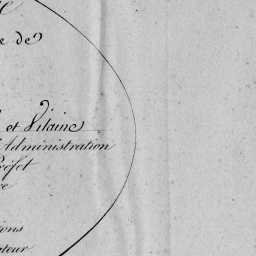 de
et Vilaine
Administration
Préfet
re
ions
ateur